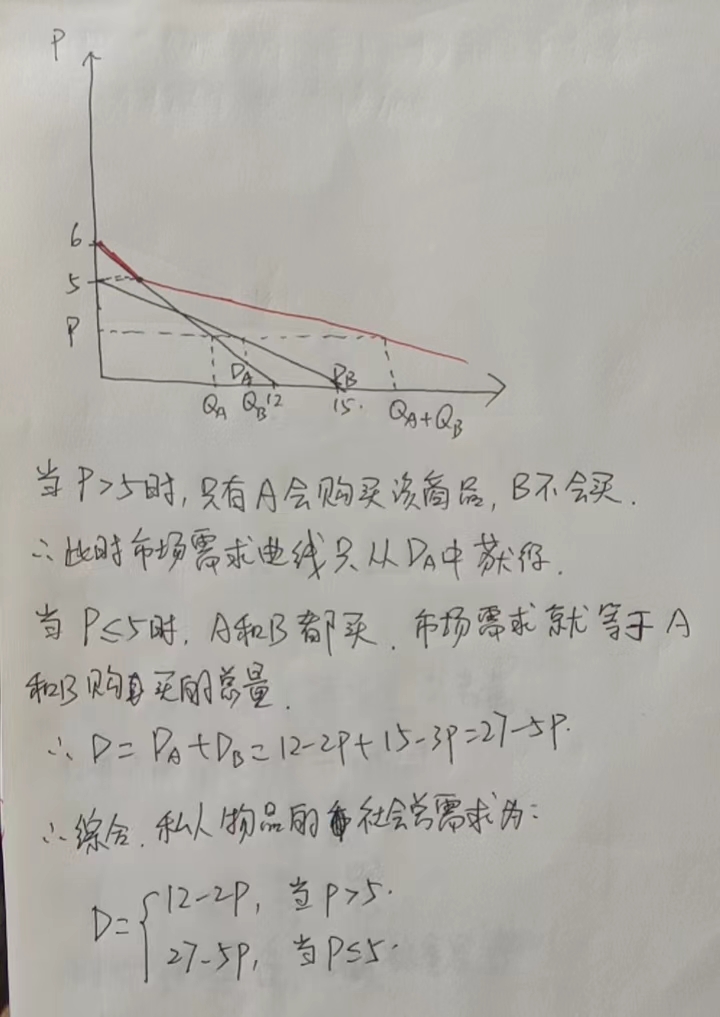 P
6
5
P
DA
DB
QA QB 12 15. QA+QB
当P>5时,只有A会购买该商品,B不会买.
∴此时市场需求曲线只从DA中获得.
当P≤5时,A和B都买.市场需求就等于A
和B购买的总量.
∴D=DA+DB=12-2P+15-3P=27-5P.
∴综合.私人物品的社会总需求为:
D={12-2P, 当P>5.
27-5P, 当P≤5.